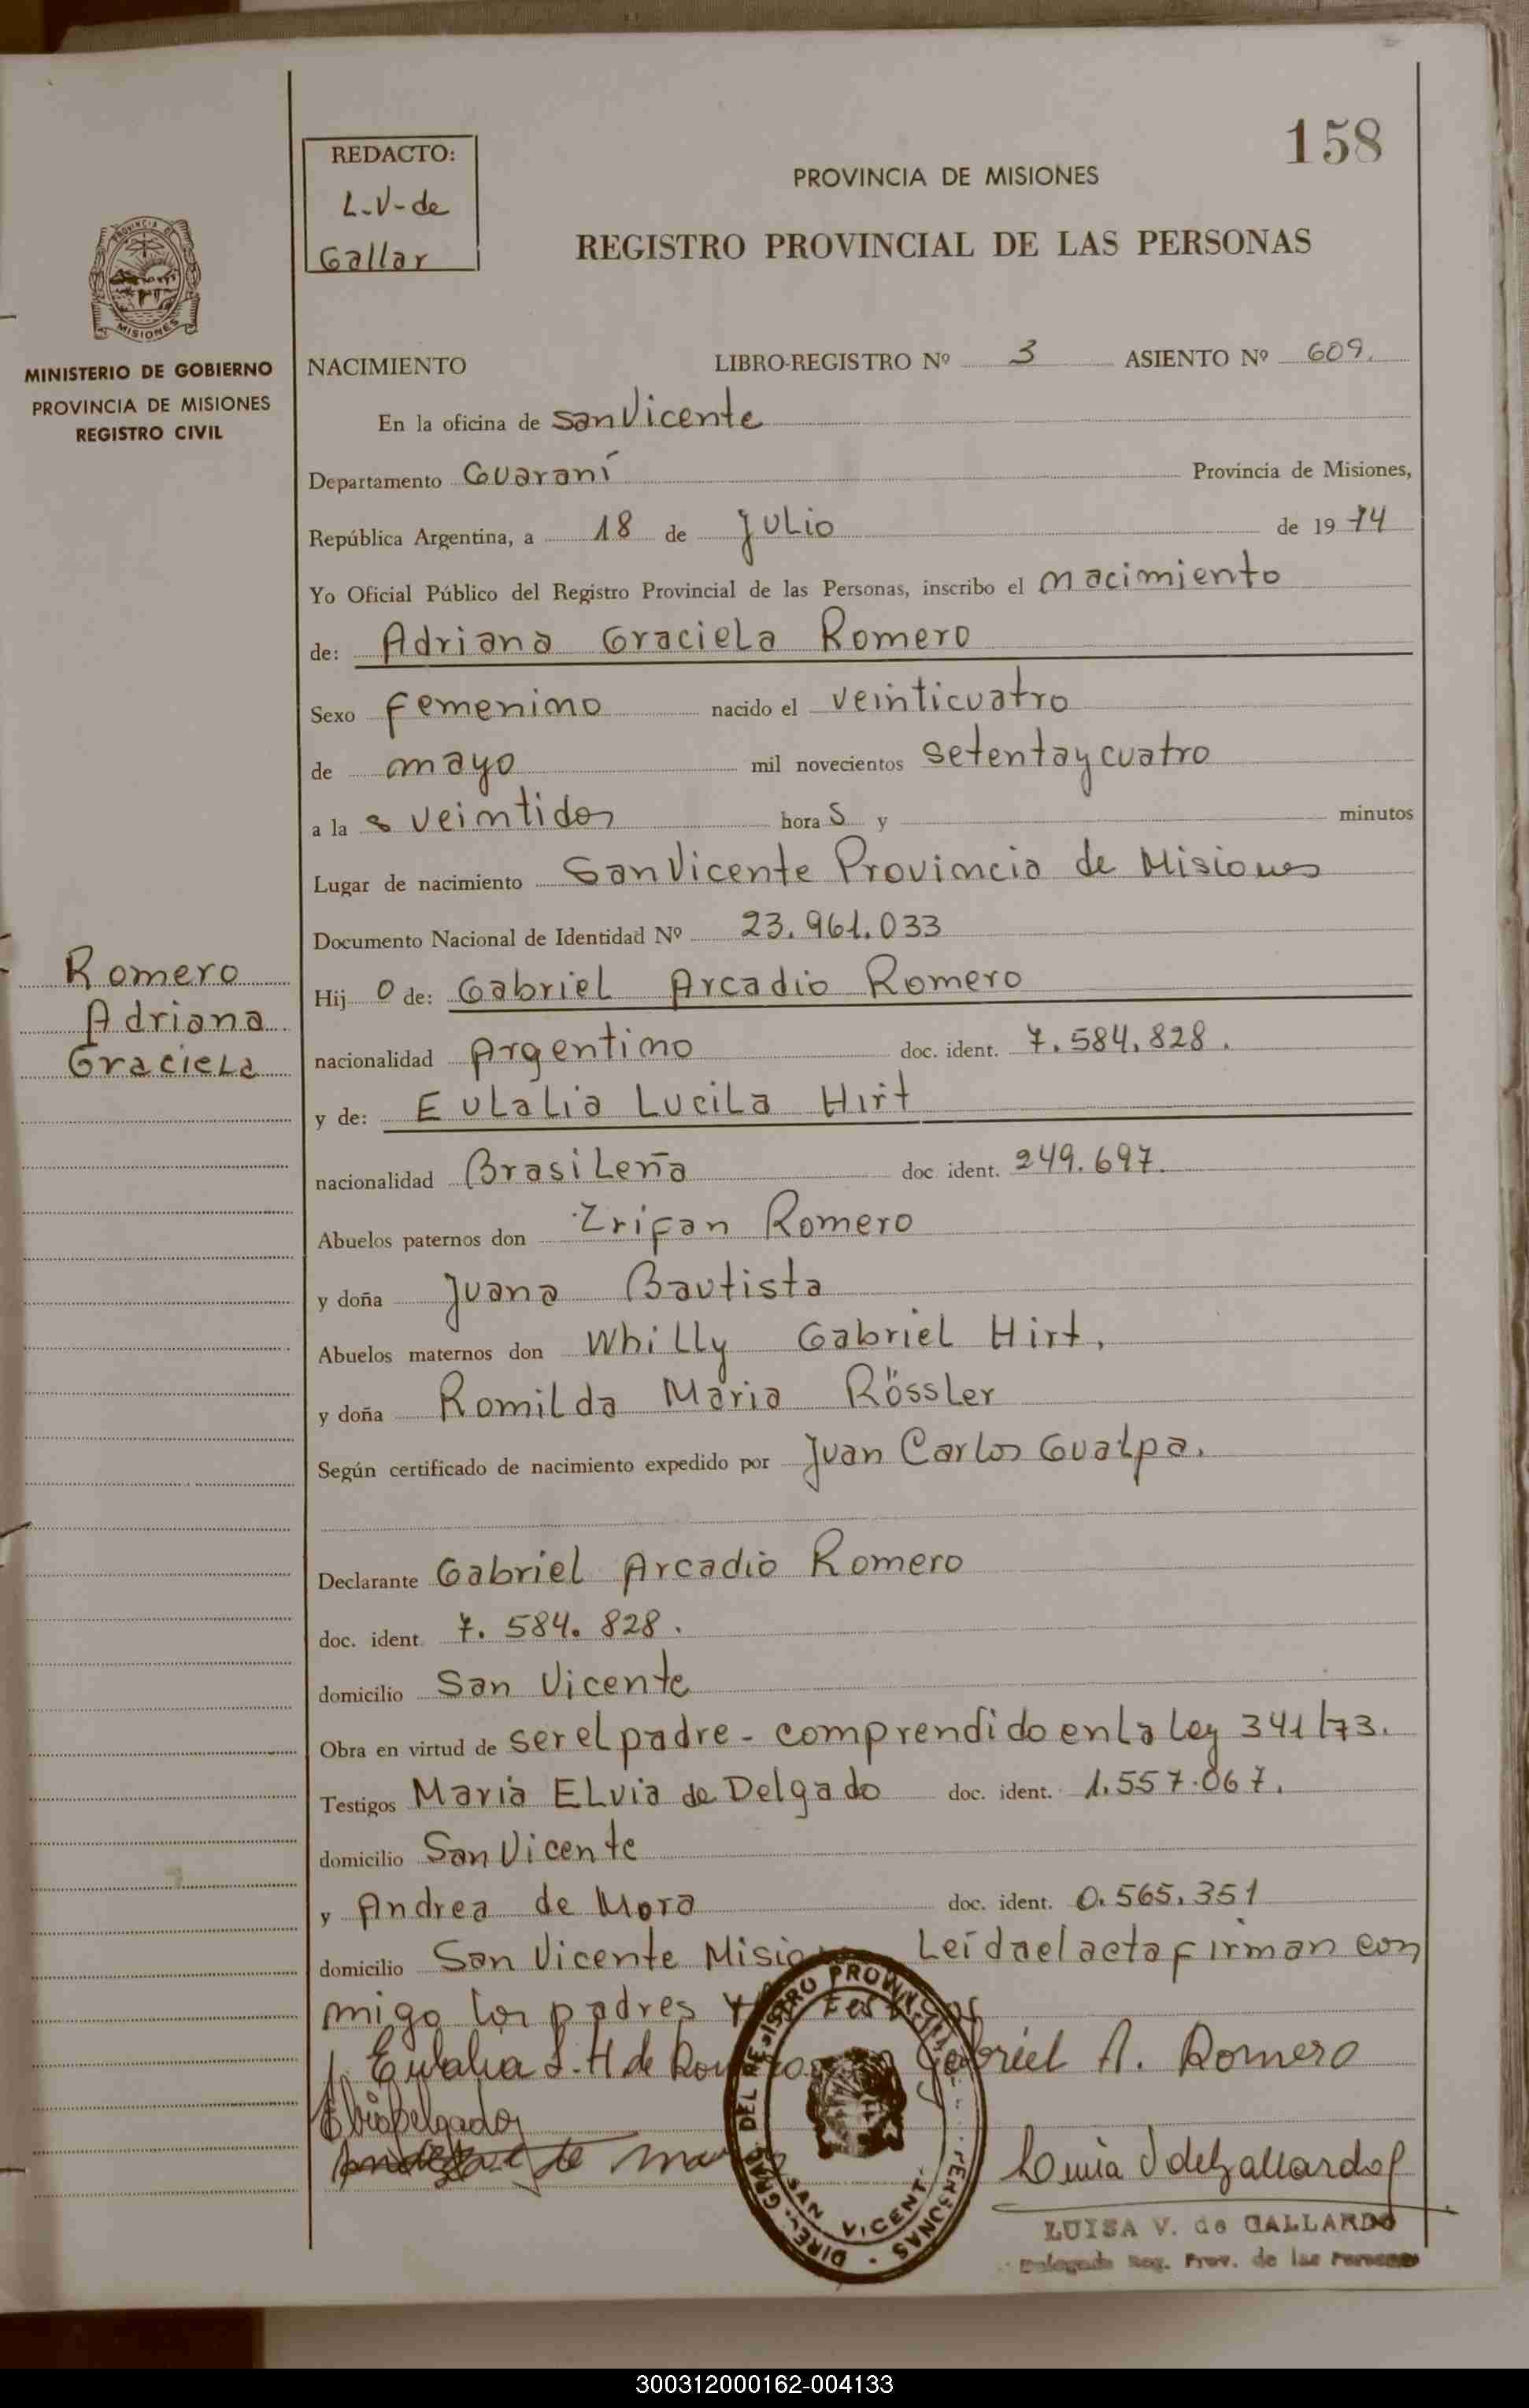 158
REDACTO:
L-V-de
Gallar
PROVINCIA DE MISIONES
REGISTRO PROVINCIAL DE LAS PERSONAS
PROVINCIA DE
MISIONES
MINISTERIO DE GOBIERNO
PROVINCIA DE MISIONES
REGISTRO CIVIL
NACIMIENTO LIBRO-REGISTRO Nº 3 ASIENTO Nº 609.
En la oficina de San Vicente
Departamento Guaraní Provincia de Misiones,
República Argentina, a 18 de Julio de 1974
Yo Oficial Público del Registro Provincial de las Personas, inscribo el nacimiento
de: Adriana Graciela Romero
Sexo Femenino nacido el veinticuatro
de mayo mil novecientos setenta y cuatro
a la s veintidos hora s y minutos
Lugar de nacimiento San Vicente Provincia de Misiones
Documento Nacional de Identidad Nº 23.961.033
Romero
Adriana
Graciela
Hij o de: Gabriel Arcadio Romero
nacionalidad Argentino doc. ident. 7.584.828.
y de: Eulalia Lucila Hirt
nacionalidad Brasileña doc. ident. 249.697.
Abuelos paternos don Trifan Romero
y doña Juana Bautista
Abuelos maternos don Whilly Gabriel Hirt,
y doña Romilda Maria Rössler
Según certificado de nacimiento expedido por Juan Carlos Gualpa.
Declarante Gabriel Arcadio Romero
doc. ident. 7.584.828.
domicilio San Vicente
Obra en virtud de ser el padre - comprendido en la ley 341/73.
Testigos Maria Elvia de Delgado doc. ident. 1.557.067.
domicilio San Vicente
y Andrea de Mora doc. ident. 0.565.351
domicilio San Vicente Leída el acta firman con
migo los padres y
Eulalia L. H. de Gabriel A. Romero
DEL REGISTRO
PERSONAS
SAN VICENTE
LUISA V. de GALLARDO
Delegada Reg. Prov. de las Personas
300312000162-004133